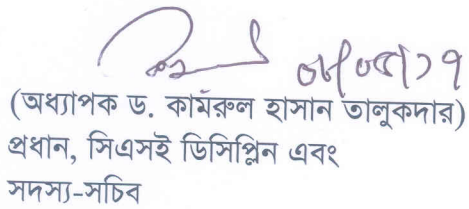 ০৮/০৫/১৭
(অধ্যাপক ড. কামরুল হাসান তালুকদার)
প্রধান, সিএসই ডিসিপ্লিন এবং
সদস্য-সচিব